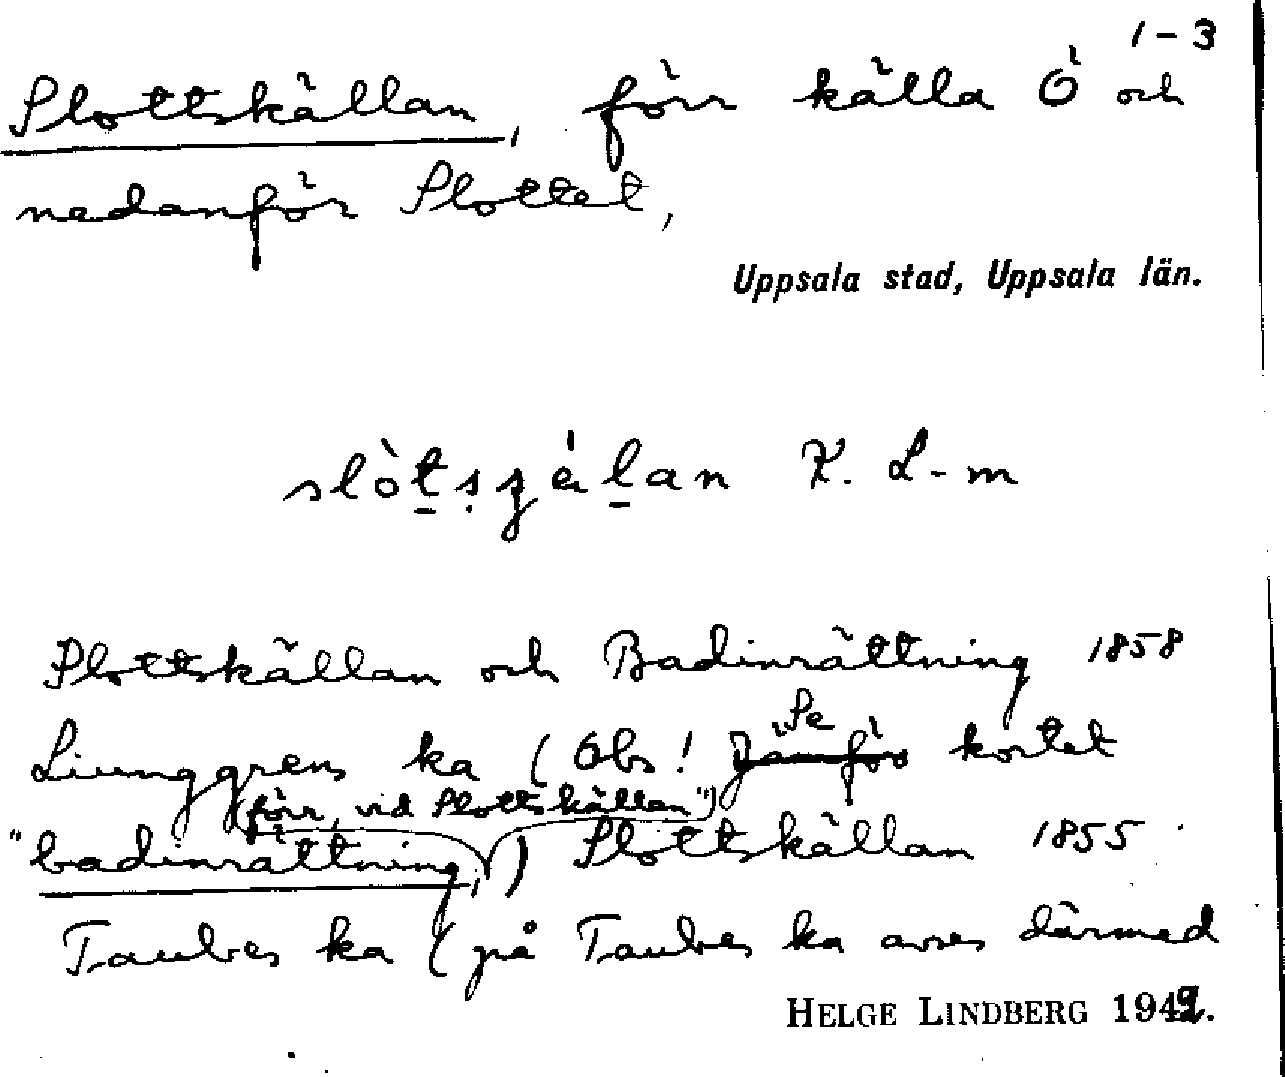 1-3
Slottskällan, förr källa Ö och
nedanför Slottet,
Uppsala stad, Uppsala län.
K. L-m
Slottskällan och Badinrättning 1858
Ljunggrens ka (Obs! Se kortet
(förr, vid Slottskällan")
"badinrättning,) Slottskällan 1855
Taubes ka (på Taubes ka avses därmed
HELGE LINDBERG 1942.